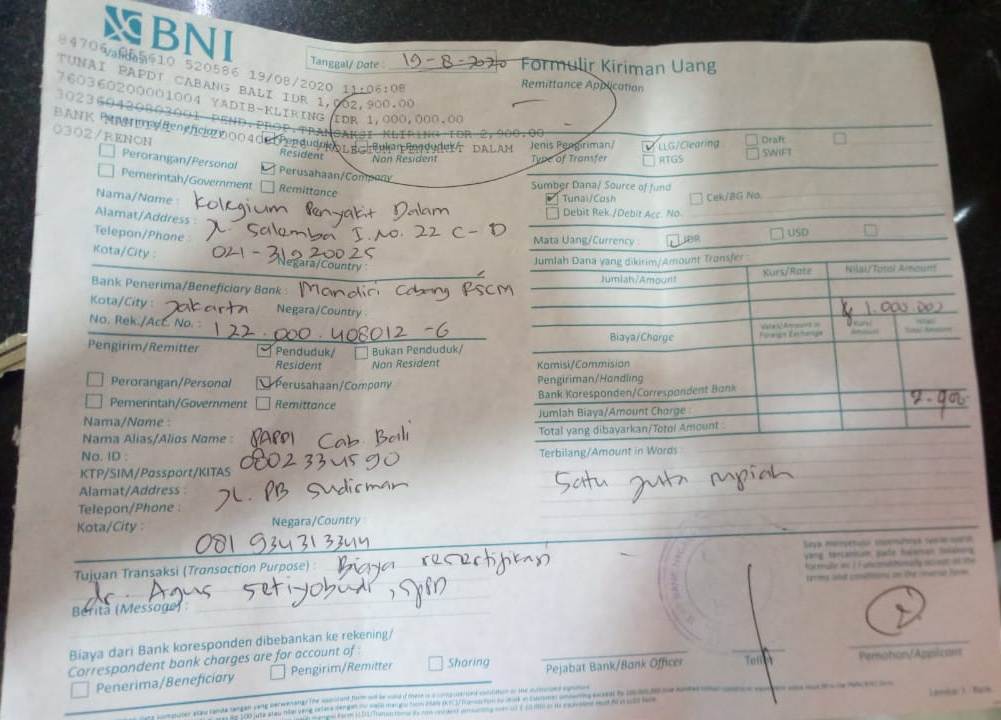 BNI
Tanggal/ Date : 19-8-2020
Formulir Kiriman Uang
Remittance Application
Validasi
84706 520586 19/08/2020 11:06:08
TUNAI PAPDI CABANG BALI IDR 1,002,900.00
760360200001004 YADIB-KLIRING IDR 1,000,000.00
PEND.PROP.TRANSAKSI KLIRING IDR 2,900.00
BANK KOLEGIUM PENYAKIT DALAM
0302/RENON
Penerima/Beneficiary
Penduduk/ Resident
Bukan Penduduk/ Non Resident
Perorangan/Personal
Perusahaan/Company
Pemerintah/Government
Remittance
Nama/Name : Kolegium Penyakit Dalam
Alamat/Address : Jl. Salemba I. No. 22 C-D
Telepon/Phone : 021-31920025
Kota/City :
Negara/Country :
Bank Penerima/Beneficiary Bank : Mandiri Cabang RSCM
Kota/City : Jakarta Negara/Country :
No. Rek./Acc. No. : 122.000.408012-6
Pengirim/Remitter
Penduduk/ Resident
Bukan Penduduk/ Non Resident
Perorangan/Personal
Perusahaan/Company
Pemerintah/Government
Remittance
Nama/Name :
Nama Alias/Alias Name : PAPDI Cab. Bali
No. ID : 0802334590
KTP/SIM/Passport/KITAS
Alamat/Address : Jl. PB Sudirman
Telepon/Phone :
Kota/City :
Negara/Country :
081 934313344
Tujuan Transaksi (Transaction Purpose) : Biaya resertifikasi
dr. Agus Setiyobudi, SpPD
Berita (Message) :
Biaya dari Bank koresponden dibebankan ke rekening/
Correspondent bank charges are for account of :
Penerima/Beneficiary
Pengirim/Remitter
Sharing
Jenis Pengiriman/
Type of Transfer
LLG/Clearing
RTGS
Draft
SWIFT
Sumber Dana/ Source of fund
Tunai/Cash
Cek/BG No.
Debit Rek./Debit Acc. No.
Mata Uang/Currency :
IDR
USD
Jumlah Dana yang dikirim/Amount Transfer :
Jumlah/Amount
Kurs/Rate
Nilai/Total Amount
Rp 1.000.000
Biaya/Charge
Valas/Amount in Foreign Exchange
Komisi/Commision
Pengiriman/Handling
Bank Koresponden/Correspondent Bank
Jumlah Biaya/Amount Charge : 2.900
Total yang dibayarkan/Total Amount :
Terbilang/Amount in Words :
Satu juta rupiah
Pejabat Bank/Bank Officer
Teller
Pemohon/Applicant